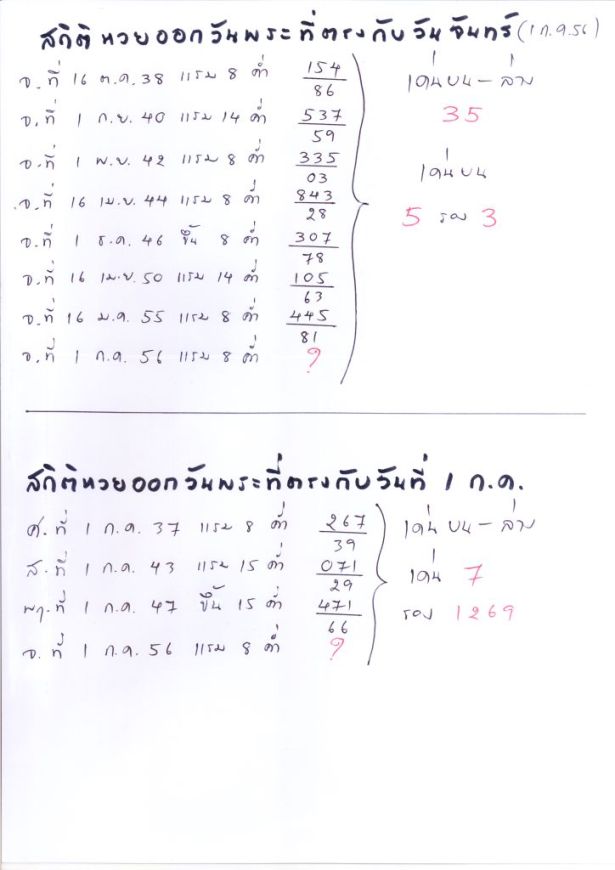 สถิติหวยออกวันพระที่ตรงกับวันจันทร์ (1 ก.ค. 56)
จ. ที่ 16 ต.ค. 38 แรม 8 ค่ำ 154
86
จ. ที่ 1 ก.ย. 40 แรม 14 ค่ำ 537
59
จ. ที่ 1 พ.ย. 42 แรม 8 ค่ำ 335
03
จ. ที่ 16 เม.ย. 44 แรม 8 ค่ำ 843
28
จ. ที่ 1 ธ.ค. 46 ขึ้น 8 ค่ำ 307
78
จ. ที่ 16 เม.ย. 50 แรม 14 ค่ำ 105
63
จ. ที่ 16 ม.ค. 55 แรม 8 ค่ำ 445
81
จ. ที่ 1 ก.ค. 56 แรม 8 ค่ำ ?
เด่นบน - ล่าง
35
เด่นบน
5 รอง 3
สถิติหวยออกวันพระที่ตรงกับวันที่ 1 ก.ค.
ศ. ที่ 1 ก.ค. 37 แรม 8 ค่ำ 267
39
ส. ที่ 1 ก.ค. 43 แรม 15 ค่ำ 071
29
พฤ. ที่ 1 ก.ค. 47 ขึ้น 15 ค่ำ 471
66
จ. ที่ 1 ก.ค. 56 แรม 8 ค่ำ ?
เด่น บน - ล่าง
เด่น 7
รอง 1269